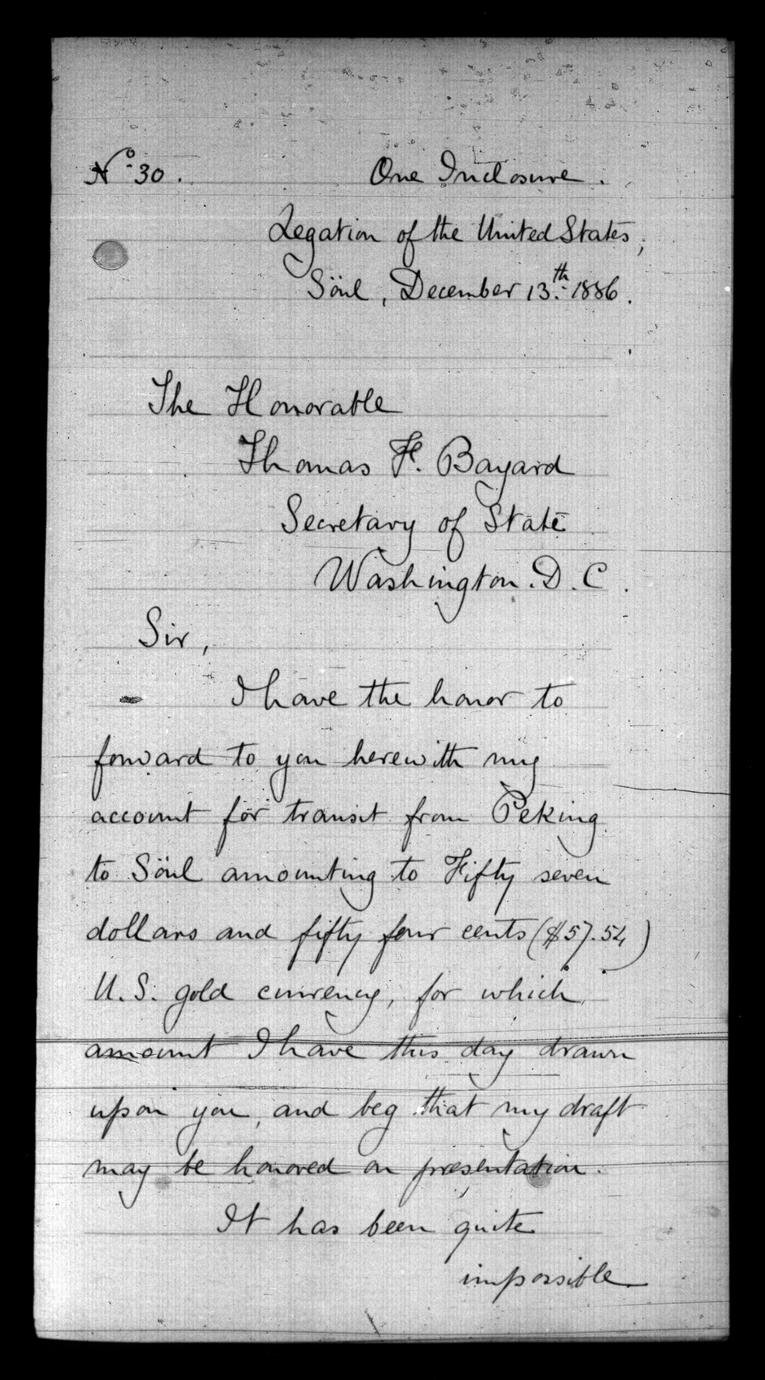 Nº 30. One Inclosure.
Legation of the United States,
Söul, December 13th. 1886.
The Honorable
Thomas F. Bayard
Secretary of State
Washington. D. C.
Sir,
I have the honor to
forward to you herewith my
account for transit from Peking
to Söul amounting to Fifty seven
dollars and fifty four cents ($57.54)
U.S. gold currency, for which
amount I have this day drawn
upon you, and beg that my draft
may be honored on presentation.
It has been quite
impossible